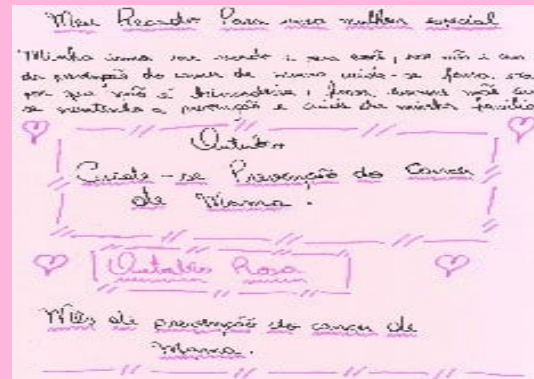 Meu Recardo Para uma mulher especial
Minha irmã meu recardo é para você,
da prevenção do cancer de mama, cuide-se
por que não é brincadeira,
se prevenção e cuide da minha família
Outubro
Cuide-se Prevenção do Cancer
de Mama.
Outubro Rosa
Mês de prevenção do cancer de
Mama.